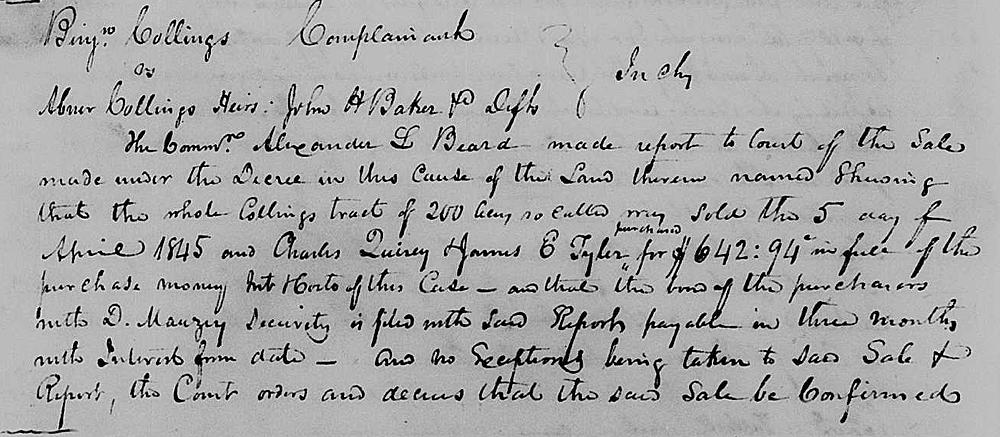 Benjn Collings Complainant
vs } In chy
Abner Collings Heirs: John H Baker &c Defts
The Commr. Alexander L Beard made report to Court of the Sale
made under the Decree in this Cause of the Land therein named Shewing
that the whole Collings tract of 200 Acres so called was sold the 5 day of
April 1845 and Charles Quirey & James E Tyler purchased for $642:94c in full of the
purchase money Int & Costs of this Case — and that the bond of the purchasers
with D. Mauzey Security is filed with said Report payable in three months
with Interest from date — and no Exceptions being taken to said Sale &
Report, the Court orders and decrees that the said Sale be Confirmed